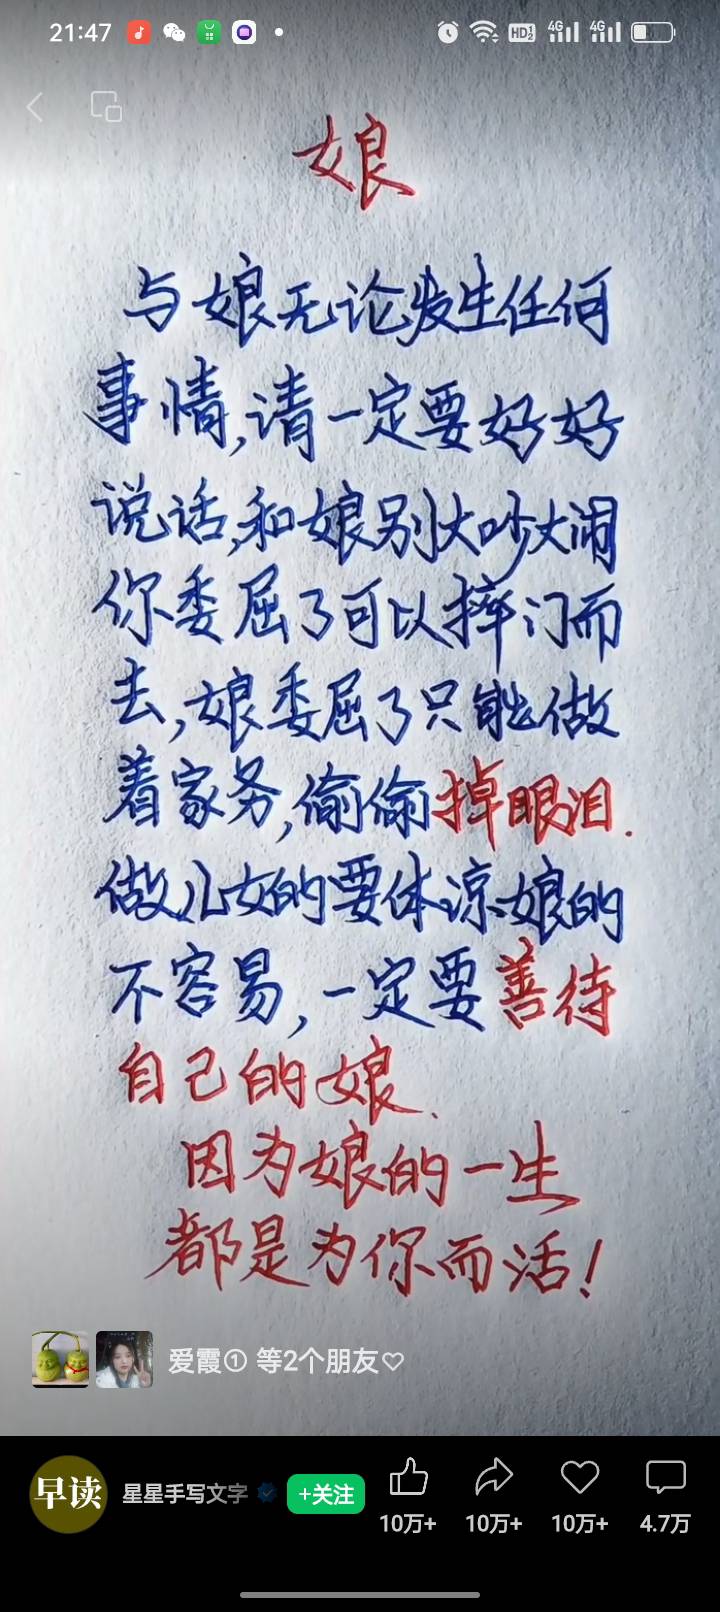 21:47
HD 1 2 4G 4G
娘
与娘无论发生任何
事情,请一定要好好
说话,和娘别大吵大闹
你委屈了可以摔门而
去,娘委屈了只能做
着家务,偷偷掉眼泪.
做儿女的要体凉娘的
不容易,一定要善待
自己的娘.
因为娘的一生
都是为你而活!
爱霞① 等2个朋友♡
早读 星星手写文字 +关注
10万+ 10万+ 10万+ 4.7万